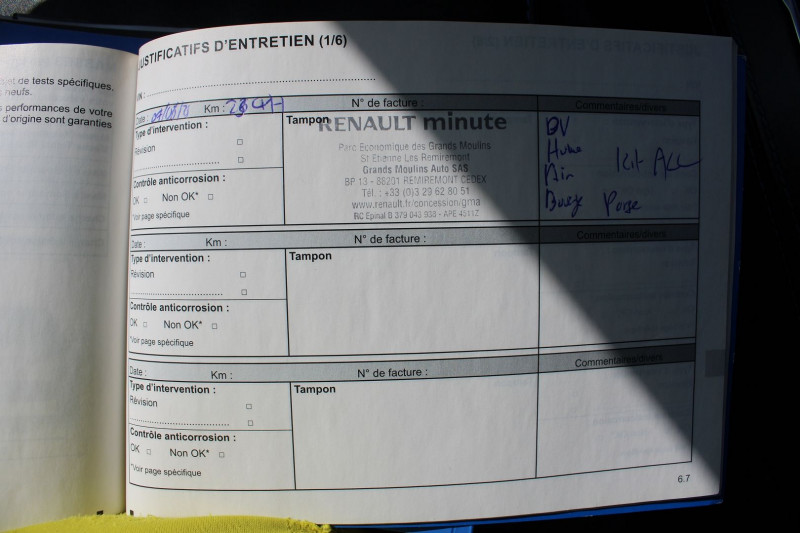 et de tests spécifiques,
neufs.
s performances de votre
d'origine sont garanties
JUSTIFICATIFS D'ENTRETIEN (1/6)
Date : Km : N° de facture : Commentaires/divers
Type d'intervention :
Révision
Contrôle anticorrosion :
OK Non OK*
*Voir page spécifique
Tampon
RENAULT minute
Parc Economique des Grands Moulins
St Etienne Les Remiremont
Grands Moulins Auto SAS
BP 13 - 88201 REMIREMONT CEDEX
Tél. : +33 (0)3 29 62 80 51
www.renault.fr/concession/gma
RC Epinal B 379 043 930 - APE 4511Z
BV
Huile
Air Kit Acc
Date : Km : N° de facture : Commentaires/divers
Type d'intervention :
Révision
Contrôle anticorrosion :
OK Non OK*
*Voir page spécifique
Tampon
Date : Km : N° de facture : Commentaires/divers
Type d'intervention :
Révision
Contrôle anticorrosion :
OK Non OK*
*Voir page spécifique
Tampon
6.7